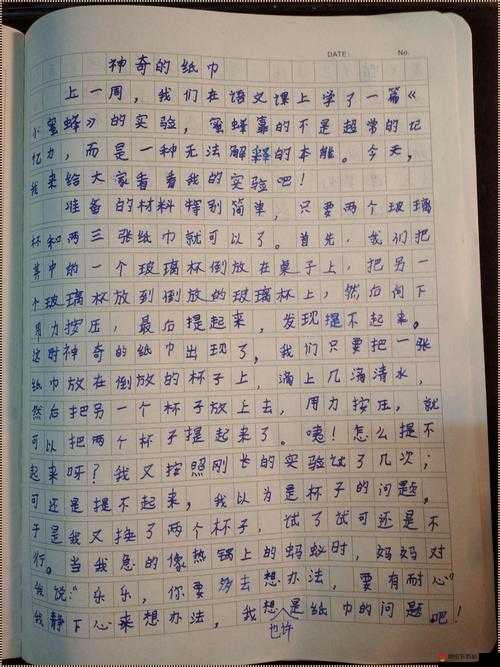 DATE: No.
神奇的纸巾
上一周，我们在语文课上学了一篇《
小蜜蜂》的实验，蜜蜂靠的不是超常的记
忆力，而是一种无法解释的本能。今天，
我来给大家看看我的实验吧！
准备的材料特别简单，只要两个玻璃
杯和两三张纸巾就可以了。首先，我们把
其中的一个玻璃杯倒放在桌子上，把另一
个玻璃杯放到倒放的玻璃杯上，然后向下
用力按压，最后提起来，发现提不起来。
这时神奇的纸巾出现了，我们只要把一张
纸巾放在倒放的杯子上，滴上几滴清水，
然后把另一个杯子放上去，用力按压，就
可以把两个杯子提起来了。咦！怎么提不
起来呀？我又按照刚长的实验试了几次；
可还是提不起来，我以为是杯子的问题，
于是我又换了两个杯子，试了试可还是不
行。当我急的像热锅上的蚂蚁时，妈妈对
我说“乐乐，你要多去想办法，要有耐心”
我静下心来想办法，我想是纸巾的问题吧！
也许